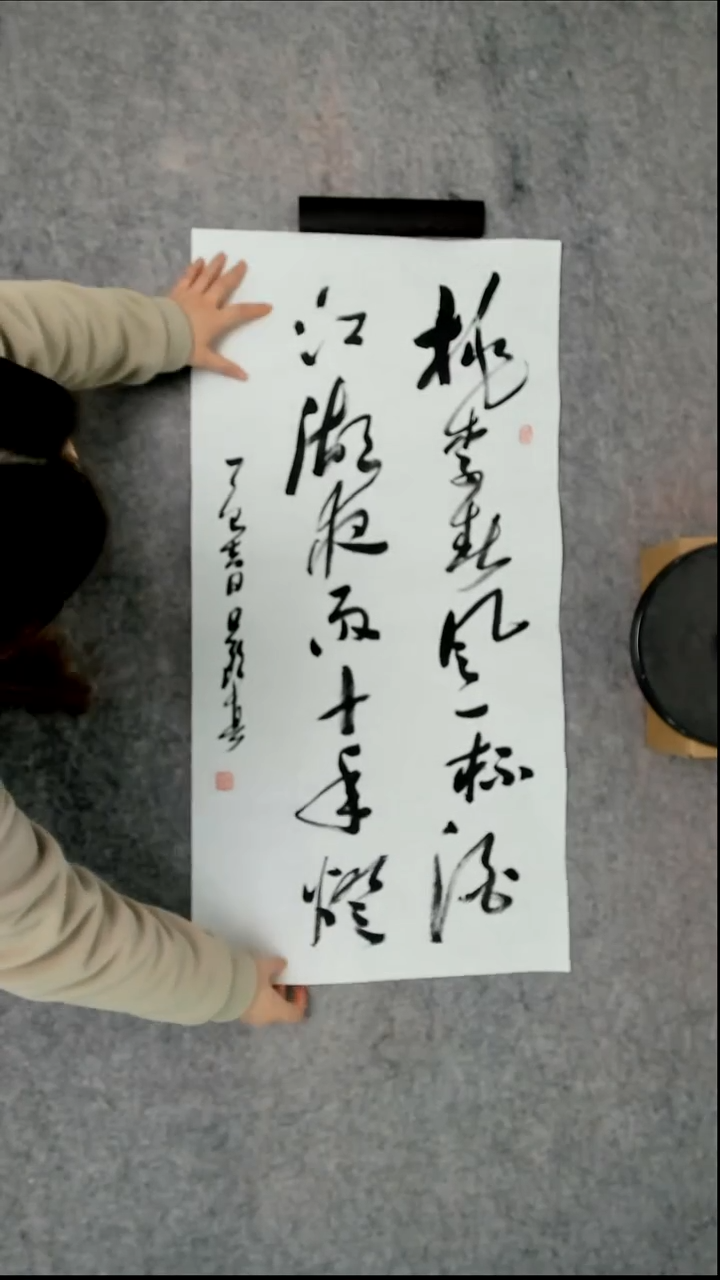 桃李春风一杯酒
江湖夜雨十年燈
吉日